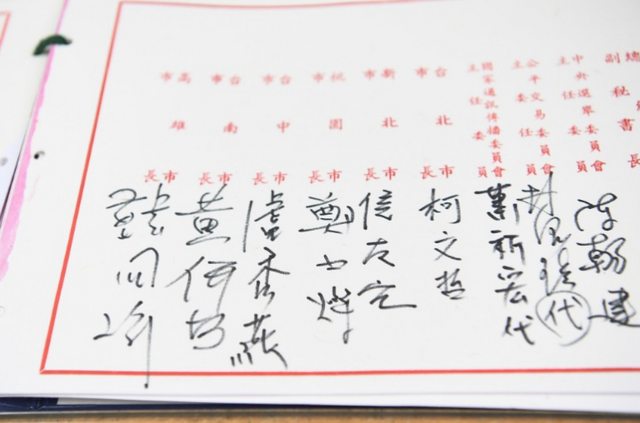 副秘書
中央選舉委員會
主任委員
陳朝建
公平交易委員會
主任委員
代
國家通訊傳播委員會
主任委員
蕭祈宏代
台北市市長
柯文哲
新北市市長
侯友宜
桃園市市長
鄭文燦
台中市市長
盧秀燕
台南市市長
黃偉哲
高雄市市長
韓國瑜